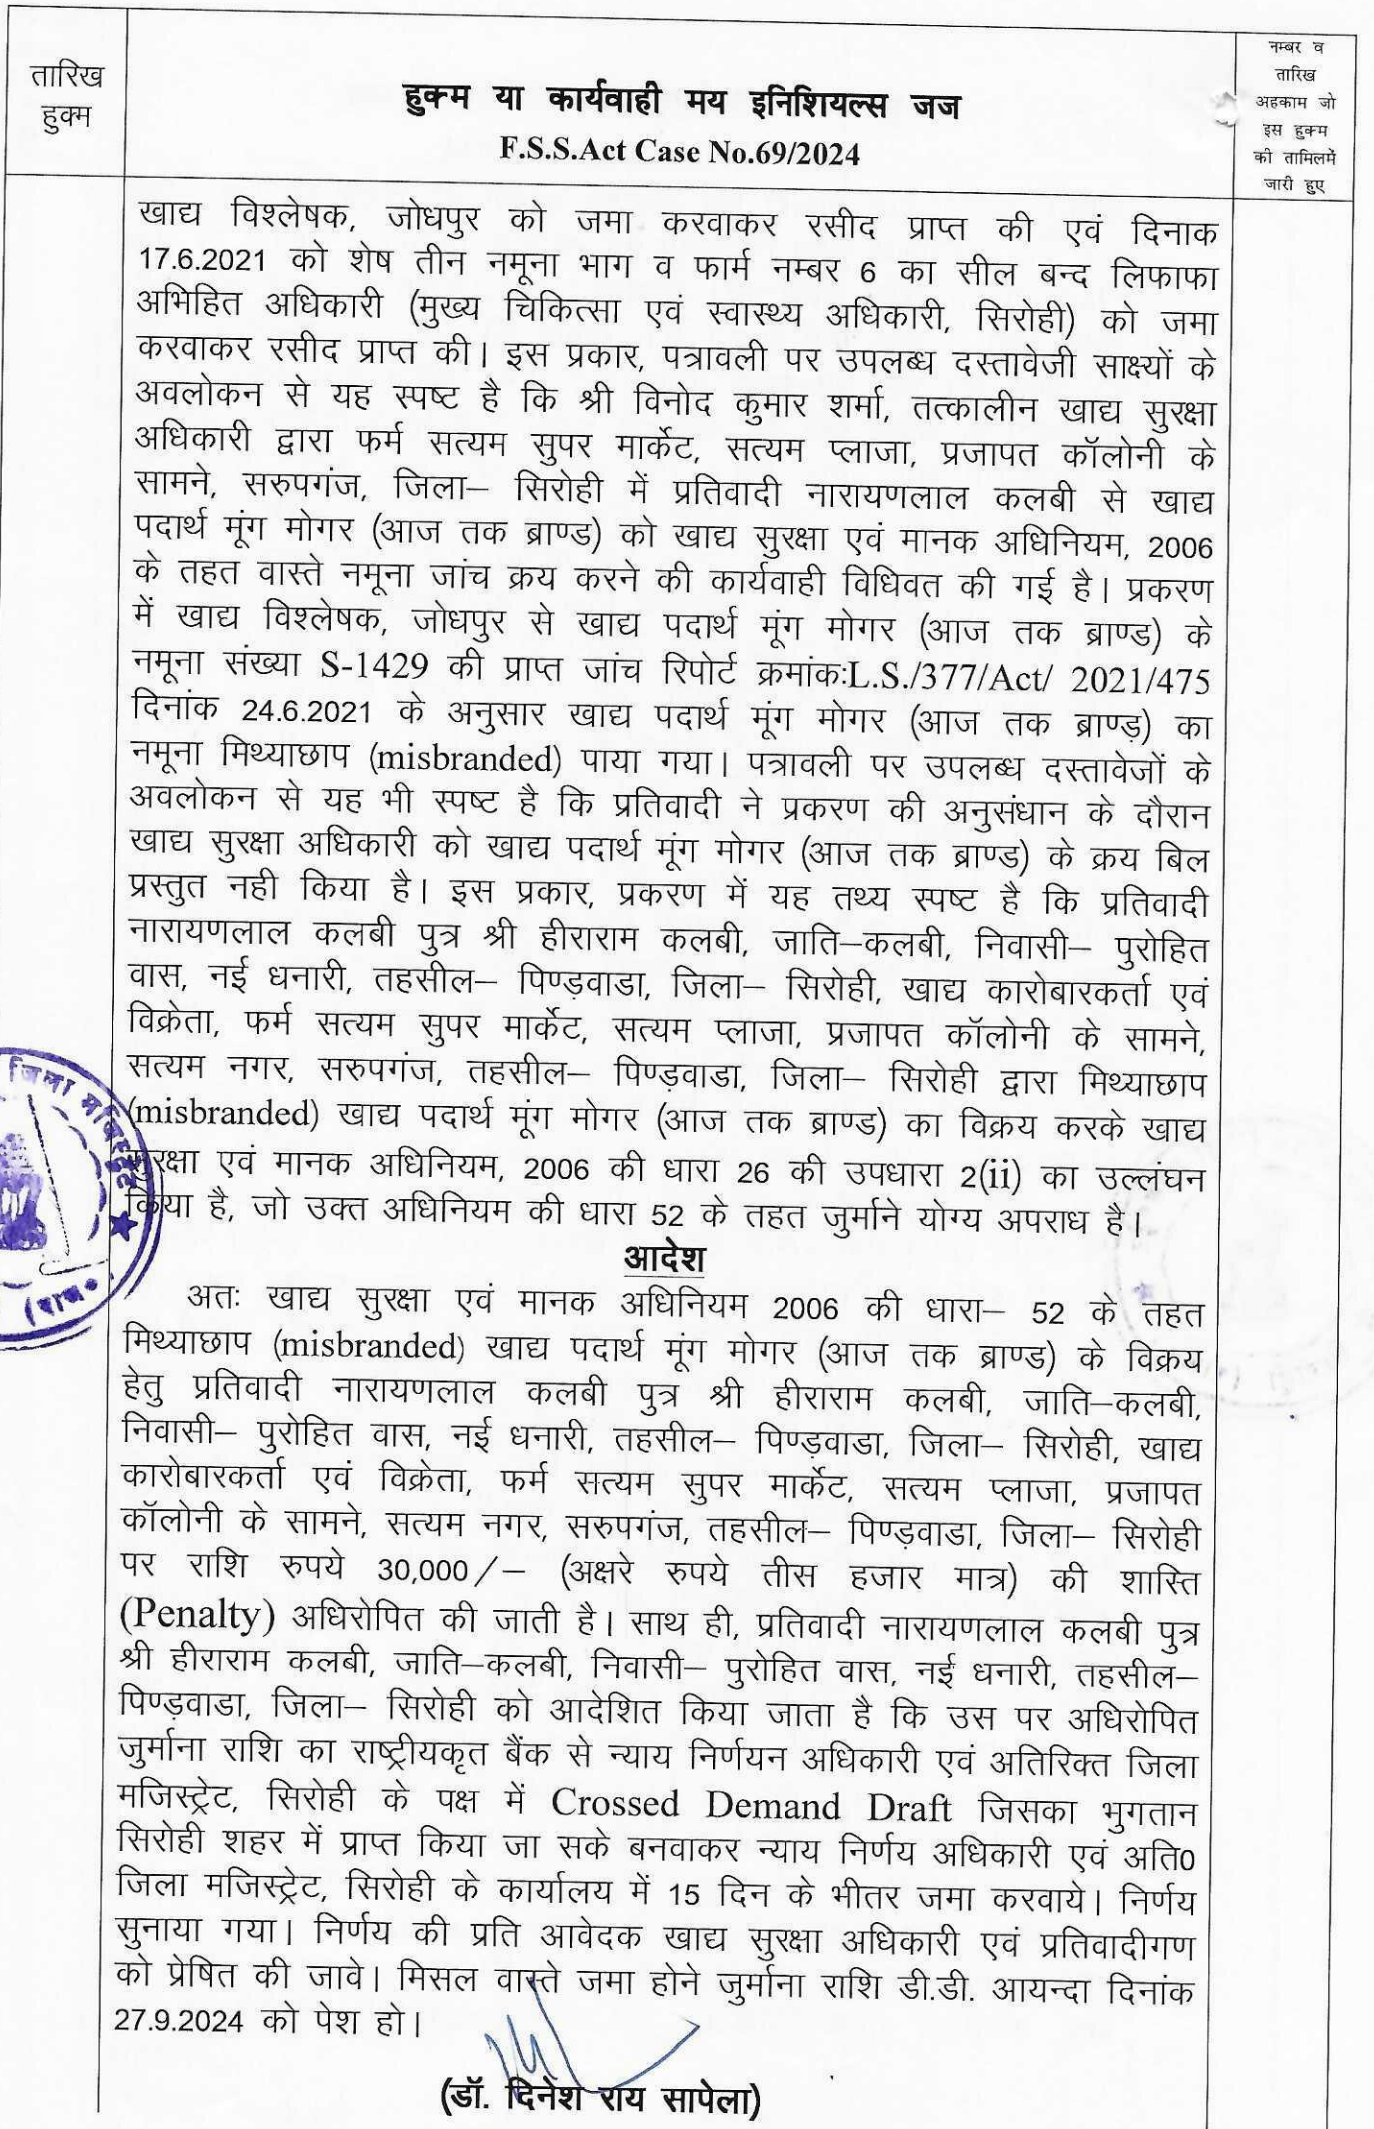 तारिख
हुक्म
हुक्म या कार्यवाही मय इनिशियल्स जज
F.S.S.Act Case No.69/2024
नम्बर व
तारिख
अहकाम जो
इस हुक्म
की तामिलमें
जारी हुए
खाद्य विश्लेषक, जोधपुर को जमा करवाकर रसीद प्राप्त की एवं दिनाक
17.6.2021 को शेष तीन नमूना भाग व फार्म नम्बर 6 का सील बन्द लिफाफा
अभिहित अधिकारी (मुख्य चिकित्सा एवं स्वास्थ्य अधिकारी, सिरोही) को जमा
करवाकर रसीद प्राप्त की। इस प्रकार, पत्रावली पर उपलब्ध दस्तावेजी साक्ष्यों के
अवलोकन से यह स्पष्ट है कि श्री विनोद कुमार शर्मा, तत्कालीन खाद्य सुरक्षा
अधिकारी द्वारा फर्म सत्यम सुपर मार्केट, सत्यम प्लाजा, प्रजापत कॉलोनी के
सामने, सरुपगंज, जिला– सिरोही में प्रतिवादी नारायणलाल कलबी से खाद्य
पदार्थ मूंग मोगर (आज तक ब्राण्ड) को खाद्य सुरक्षा एवं मानक अधिनियम, 2006
के तहत वास्ते नमूना जांच क्रय करने की कार्यवाही विधिवत की गई है। प्रकरण
में खाद्य विश्लेषक, जोधपुर से खाद्य पदार्थ मूंग मोगर (आज तक ब्राण्ड) के
नमूना संख्या S-1429 की प्राप्त जांच रिपोर्ट क्रमांकः L.S./377/Act/ 2021/475
दिनांक 24.6.2021 के अनुसार खाद्य पदार्थ मूंग मोगर (आज तक ब्राण्ड़) का
नमूना मिथ्याछाप (misbranded) पाया गया। पत्रावली पर उपलब्ध दस्तावेजों के
अवलोकन से यह भी स्पष्ट है कि प्रतिवादी ने प्रकरण की अनुसंधान के दौरान
खाद्य सुरक्षा अधिकारी को खाद्य पदार्थ मूंग मोगर (आज तक ब्राण्ड) के क्रय बिल
प्रस्तुत नही किया है। इस प्रकार, प्रकरण में यह तथ्य स्पष्ट है कि प्रतिवादी
नारायणलाल कलबी पुत्र श्री हीराराम कलबी, जाति–कलबी, निवासी– पुरोहित
वास, नई धनारी, तहसील– पिण्ड़वाडा, जिला– सिरोही, खाद्य कारोबारकर्ता एवं
विक्रेता, फर्म सत्यम सुपर मार्केट, सत्यम प्लाजा, प्रजापत कॉलोनी के सामने,
सत्यम नगर, सरुपगंज, तहसील– पिण्ड़वाडा, जिला– सिरोही द्वारा मिथ्याछाप
(misbranded) खाद्य पदार्थ मूंग मोगर (आज तक ब्राण्ड) का विक्रय करके खाद्य
सुरक्षा एवं मानक अधिनियम, 2006 की धारा 26 की उपधारा 2(ii) का उल्लंघन
किया है, जो उक्त अधिनियम की धारा 52 के तहत जुर्माने योग्य अपराध है।
आदेश
अतः खाद्य सुरक्षा एवं मानक अधिनियम 2006 की धारा– 52 के तहत
मिथ्याछाप (misbranded) खाद्य पदार्थ मूंग मोगर (आज तक ब्राण्ड) के विक्रय
हेतु प्रतिवादी नारायणलाल कलबी पुत्र श्री हीराराम कलबी, जाति–कलबी,
निवासी– पुरोहित वास, नई धनारी, तहसील– पिण्ड़वाडा, जिला– सिरोही, खाद्य
कारोबारकर्ता एवं विक्रेता, फर्म सत्यम सुपर मार्केट, सत्यम प्लाजा, प्रजापत
कॉलोनी के सामने, सत्यम नगर, सरुपगंज, तहसील– पिण्ड़वाडा, जिला– सिरोही
पर राशि रुपये 30,000/– (अक्षरे रुपये तीस हजार मात्र) की शास्ति
(Penalty) अधिरोपित की जाती है। साथ ही, प्रतिवादी नारायणलाल कलबी पुत्र
श्री हीराराम कलबी, जाति–कलबी, निवासी– पुरोहित वास, नई धनारी, तहसील–
पिण्ड़वाडा, जिला– सिरोही को आदेशित किया जाता है कि उस पर अधिरोपित
जुर्माना राशि का राष्ट्रीयकृत बैंक से न्याय निर्णयन अधिकारी एवं अतिरिक्त जिला
मजिस्ट्रेट, सिरोही के पक्ष में Crossed Demand Draft जिसका भुगतान
सिरोही शहर में प्राप्त किया जा सके बनवाकर न्याय निर्णय अधिकारी एवं अति0
जिला मजिस्ट्रेट, सिरोही के कार्यालय में 15 दिन के भीतर जमा करवाये। निर्णय
सुनाया गया। निर्णय की प्रति आवेदक खाद्य सुरक्षा अधिकारी एवं प्रतिवादीगण
को प्रेषित की जावे। मिसल वास्ते जमा होने जुर्माना राशि डी.डी. आयन्दा दिनांक
27.9.2024 को पेश हो।
(डॉ. दिनेश राय सापेला)
जिला मजिस्ट्रेट
(राज०)